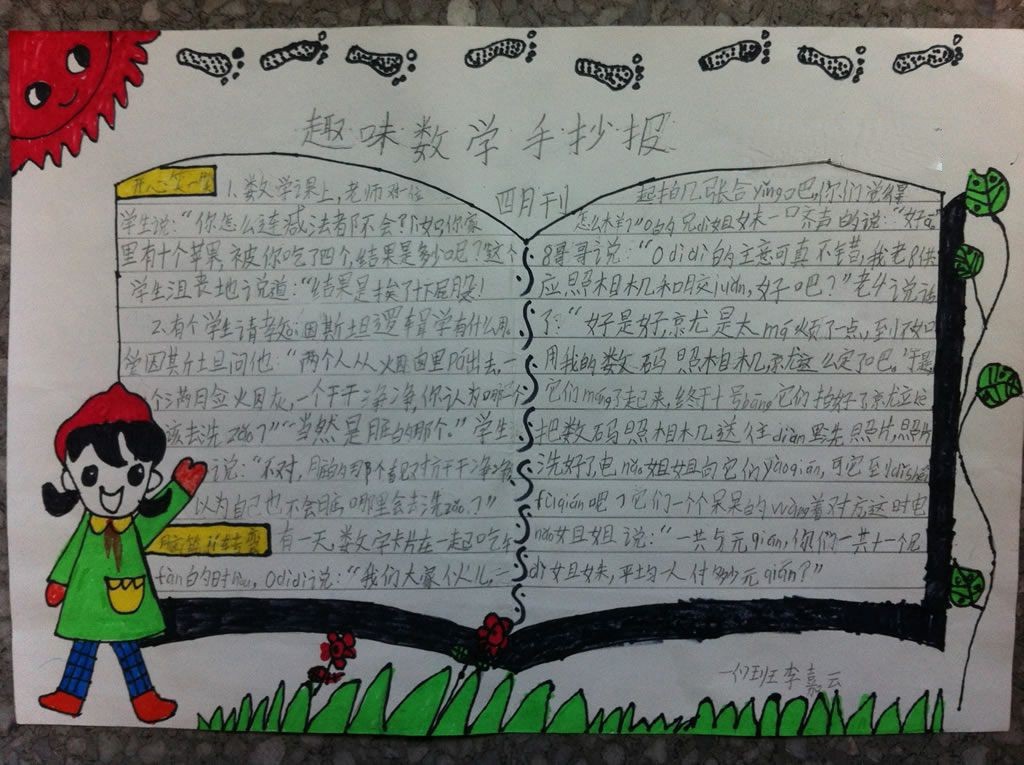 趣味数学手抄报
四月刊
开心笑一笑
1.数学课上,老师对一位
学生说:“你怎么连减法都不会?假如你家
里有十个苹果,被你吃了四个,结果是多少呢?”这个
学生沮丧地说道:“结果是挨了十下屁股!
2.有个学生请教爱因斯坦逻辑学有什么用。
爱因斯坦问他:“两个人从烟囱里爬出去,一
个满脸火月灰,一个干干净净,你认为哪个
该去洗zǎo?”“当然是脏的那个。”学生
说:“不对,脏的那个看见对方干干净净,
以为自己也不会脏,哪里会去洗zǎo?”
脑筋转转弯
有一天,数字卡片在一起吃午
fàn的时hou,0 didi说:“我们大家伙儿,一
起拍几张合yǐng吧,你们觉得
怎么样?”0的兄di姐妹一口齐声的说:“好
8哥哥说:“0 didi的主意可真不错,我老8供
应照相机和胶juǎn,好吧?”老4说话
了:“好是好,就是太má烦了一点,到不如
用我的数码照相机,就这么定了吧。”于是
它们máng了起来,终于十号bāng它们拍好了,就立
把数码照相机送往diàn 先照片,照片
洗好了,电nǎo姐姐向它们yàoqián,可它
fùqián吧?它们一个个呆呆的wàng着对方这时电
nǎo姐姐说:“一共5元qián,你们一共十一个兄
di姐妹,平均一人付多少元qián?”
李嘉云